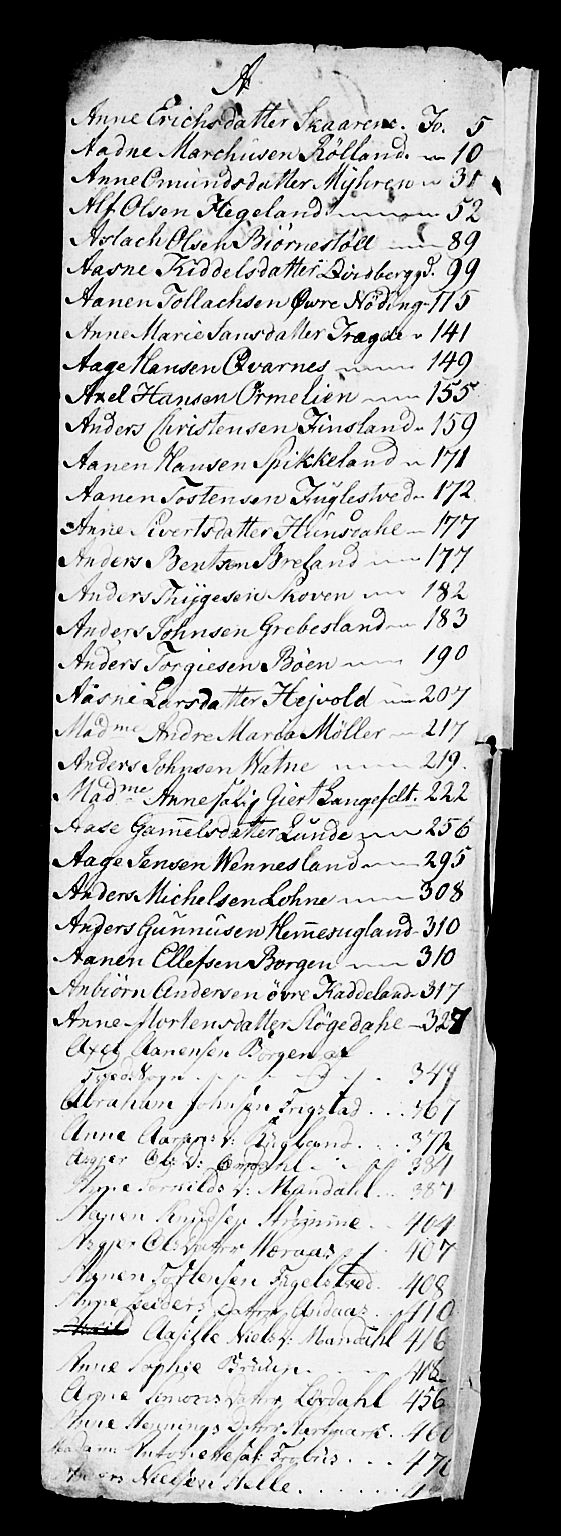 A
Anne Erichsdatter Skaarene. Fo. 5
Aadne Marchusen Rölland. 10
Anne Omundsdatter Myhren 31
Alf Olsen Hegeland 52
Aslach Olsen Biörnestöll 89
Aasne Kiddelsdatter 99
Aanen Tollachsen Øvre Nöding 115
Anne Marie Jansdatter Tragde 141
Aage Hansen Qvarnes 149
Axel Hansen Ormelien 155
Anders Christensen Finsland 159
Aanen Hansen Spikkeland 171
Aanen Tostensen Fuglestved 172
Anne Sivertsdatter Hunsdahe 177
Anders Bentsen Breland 177
Anders Thÿgesen Skoven 182
Anders Johnsen Grebesland 183
Anders Torgiesen Böen 190
Aasne Larsdatter Hejvold 207
Madme Andre Maria Möller 217
Anders Johnsen Watne 219.
Madme Anne salig Giert Langefelt. 222
Aase Gam̄elsdatter Lunde 256
Aage Jensen Wennesland 295
Anders Michelsen Lohne 308
Anders Gunnusen Hem̄esugland 310
Aanen Ellefsen Borgen 310
Anbiörn Andersen övre Kaddeland 317
Anne Mortensdatter Högedahe 327
Axel Aanensen Borgen af
Sogn 348
Abraham Johnsen Frigstad 367
Anne 372
Asgier Ols d: 384
Anne Torkilds d: Mandahl 387
Aanen Knudsen Strömme 404
Asgier Olsdatter Höraas 407
Aanen Tostensen Fugelstved 408
Anne datter Audaas 410
Aasille Niels d: Mandahl 416
Anne Sophie Bruun
Anne Simonsdatter Lördahl 456
Anne Hennings datter Hartmark 460
Madame Antonette sal: Trobus 476
Nielsen Stelle